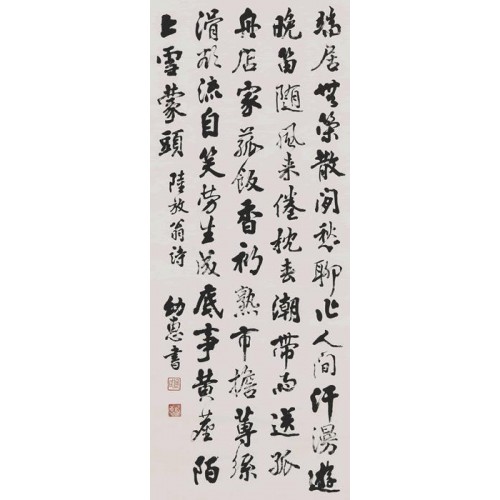 端居無策散閒愁聊作人間汗漫遊
晚笛随風来倦枕春潮帶雨送孤
舟店家菰飯香初熟市擔蓴絲
滑欲流自笑勞生成底事黄塵陌
上雪蒙頭 陸放翁詩 幼惠書